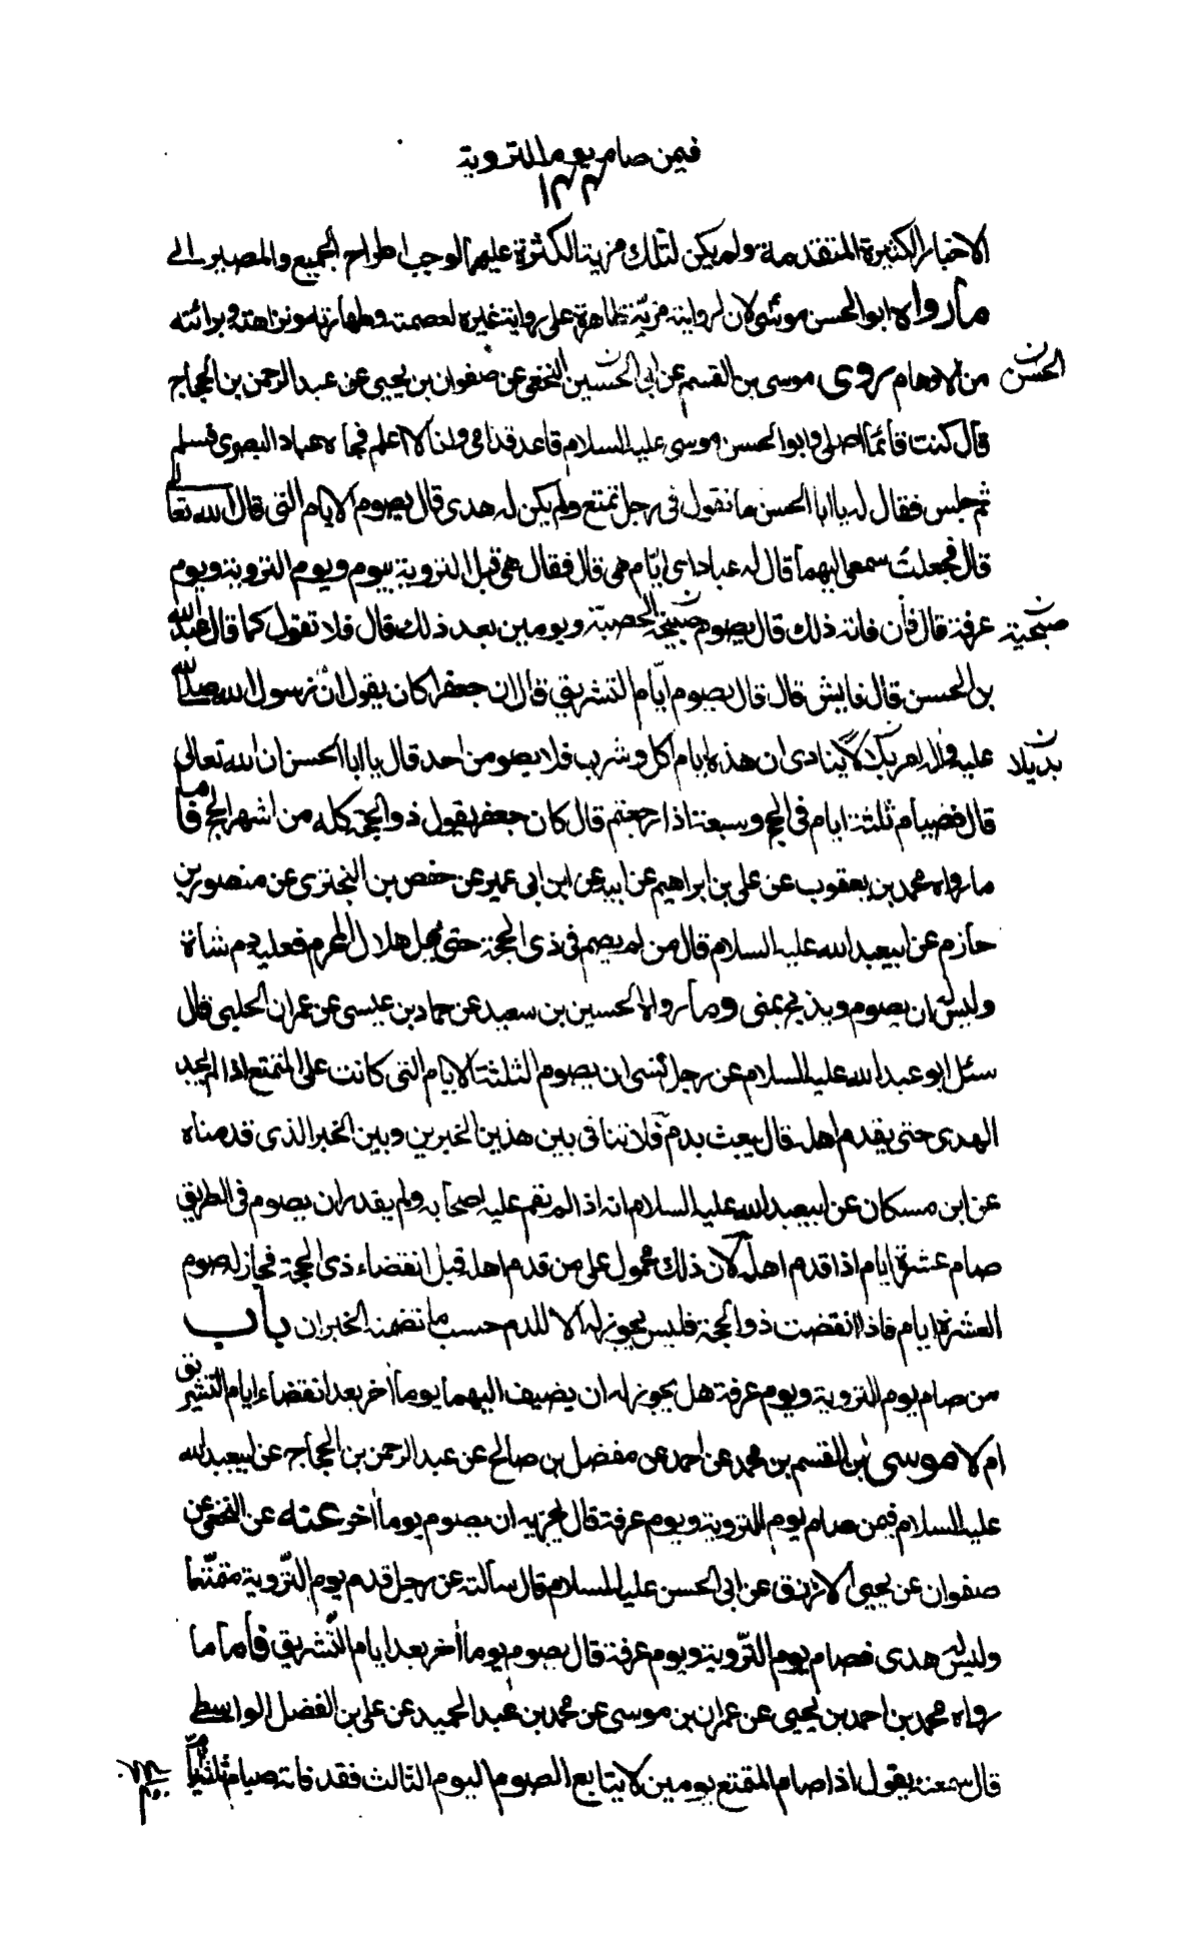 فيمن صام يوم التروية
١٣٣
الاخبار الكثيرة المتقدمة ولو لم يكن لتلك مزية الكثرة عليهما لوجب اطراح الجميع والمصير الى
ما رواه ابو الحسن موسى لان لروايته مزية ظاهرة على رواية غيره لعصمته وطهارته ونزاهته وبرائته
من الاوهام روى موسى بن القسم عن ابى الحسين النخعى عن صفوان بن يحيى عن عبد الرحمن بن الحجاج
الحسن ن
قال كنت قائما اصلى وابو الحسن موسى عليه السلام قاعد قدامى وانا لا اعلم فجاءه عباد البصرى فسلم
ثم جلس فقال له يا ابا الحسن ما تقول فى رجل تمتع ولم يكن له هدى قال يصوم الايام التى قال الله تعالى
قال فجعلت سمعى اليهما قال له عباد اى ايام هى قال فقال هى قبل التروية بيوم ويوم التروية ويوم
عرفة قال فان فاته ذلك قال يصوم صبيحة الحصبة ويومين بعد ذلك قال فلا تقول كما قال عبد الله
صبحية ن
بن الحسن قال فايش قال قال يصوم ايام التشريق قال ان جعفرا كان يقول ان رسول الله صلى الله
عليه واله امر بلالا ينادى ان هذه ايام اكل وشرب فلا يصومن احد قال يا ابا الحسن ان الله تعالى
بديلا ن
قال فصيام ثلثة ايام فى الحج وسبعة اذا رجعتم قال كان جعفر يقول ذو الحجة كله من اشهر الحج فاما
ما رواه محمد بن يعقوب عن على بن ابراهيم عن ابيه عن ابن ابى عمير عن حفص بن البخترى عن منصور بن
حازم عن ابيعبد الله عليه السلام قال من لم يصم فى ذى الحجة حتى يهل هلال المحرم فعليه دم شاة
وليس له ان يصوم ويذبح بمنى وما رواه الحسين بن سعيد عن حماد بن عيسى عن عمران الحلبى قال
سئل ابو عبد الله عليه السلام عن رجل نسى ان يصوم الثلثة الايام التى كانت على المتمتع اذا لم يجد
الهدى حتى يقدم اهله قال يبعث بدم فلا تنافى بين هذين الخبرين وبين الخبر الذى قدمناه
عن ابن مسكان عن ابيعبد الله عليه السلام انه اذا لم تقم عليه اصحابه ولم يقدر ان يصوم فى الطريق
صام عشرة ايام اذا قدم اهله لان ذلك محمول على من قدم اهله قبل انقضاء ذى الحجة فجاز له صوم
العشرة ايام فاذا انقضت ذو الحجة فليس يجوز له الا للدم حسب ما تضمنه الخبران باب
من صام يوم التروية ويوم عرفة هل يجوز له ان يضيف اليهما يوما اخر بعد انقضاء ايام التشريق
ام لا موسى بن القسم بن محمد عن احمد عن مفضل بن صالح عن عبد الرحمن بن الحجاج عن ابيعبد الله
عليه السلام فيمن صام يوم التروية ويوم عرفة قال يجزيه ان يصوم يوما اخر عنه عن النخعى عن
صفوان عن يحيى الازرق عن ابى الحسن عليه السلام قال سالته عن رجل قدم يوم التروية متمتعا
وليس له هدى فصام يوم التروية ويوم عرفة قال يصوم يوما اخر بعد ايام التشريق فاما ما
رواه محمد بن احمد بن يحيى عن عمران بن موسى عن محمد بن عبد الحميد عن على بن الفضل الواسطى
قال سمعته يقول اذا صام المتمتع يومين لا يتابع الصوم اليوم الثالث فقد فاته صيام ثلثة ايام